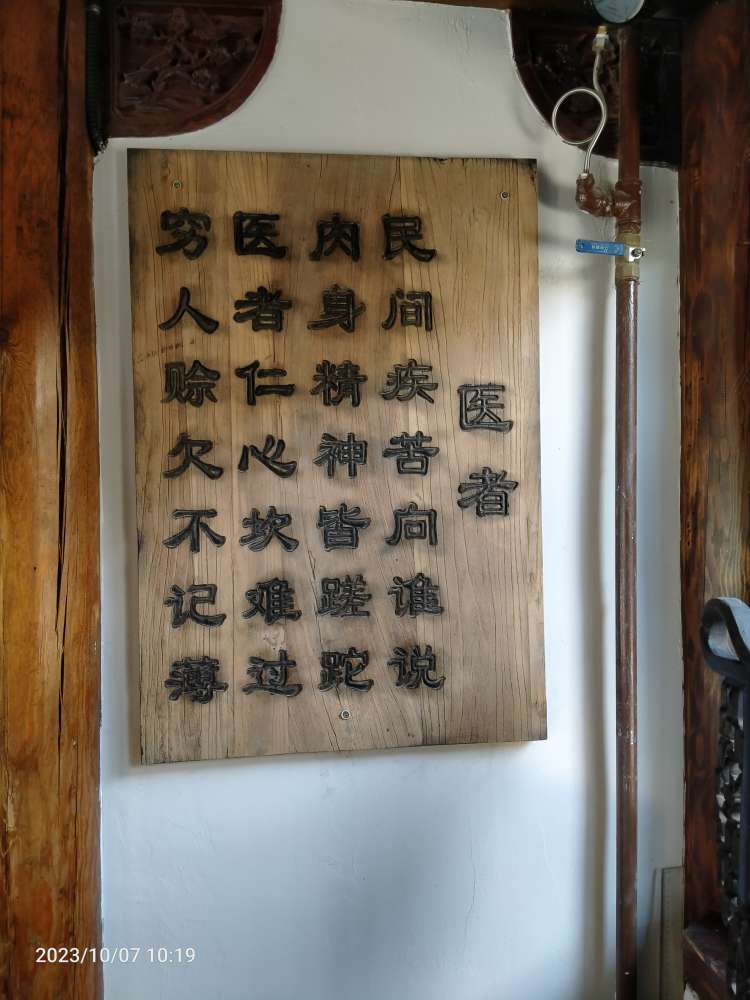 医者
民间疾苦向谁说
肉身精神皆蹉跎
医者仁心坎难过
穷人赊欠不记薄
2023/10/07 10:19